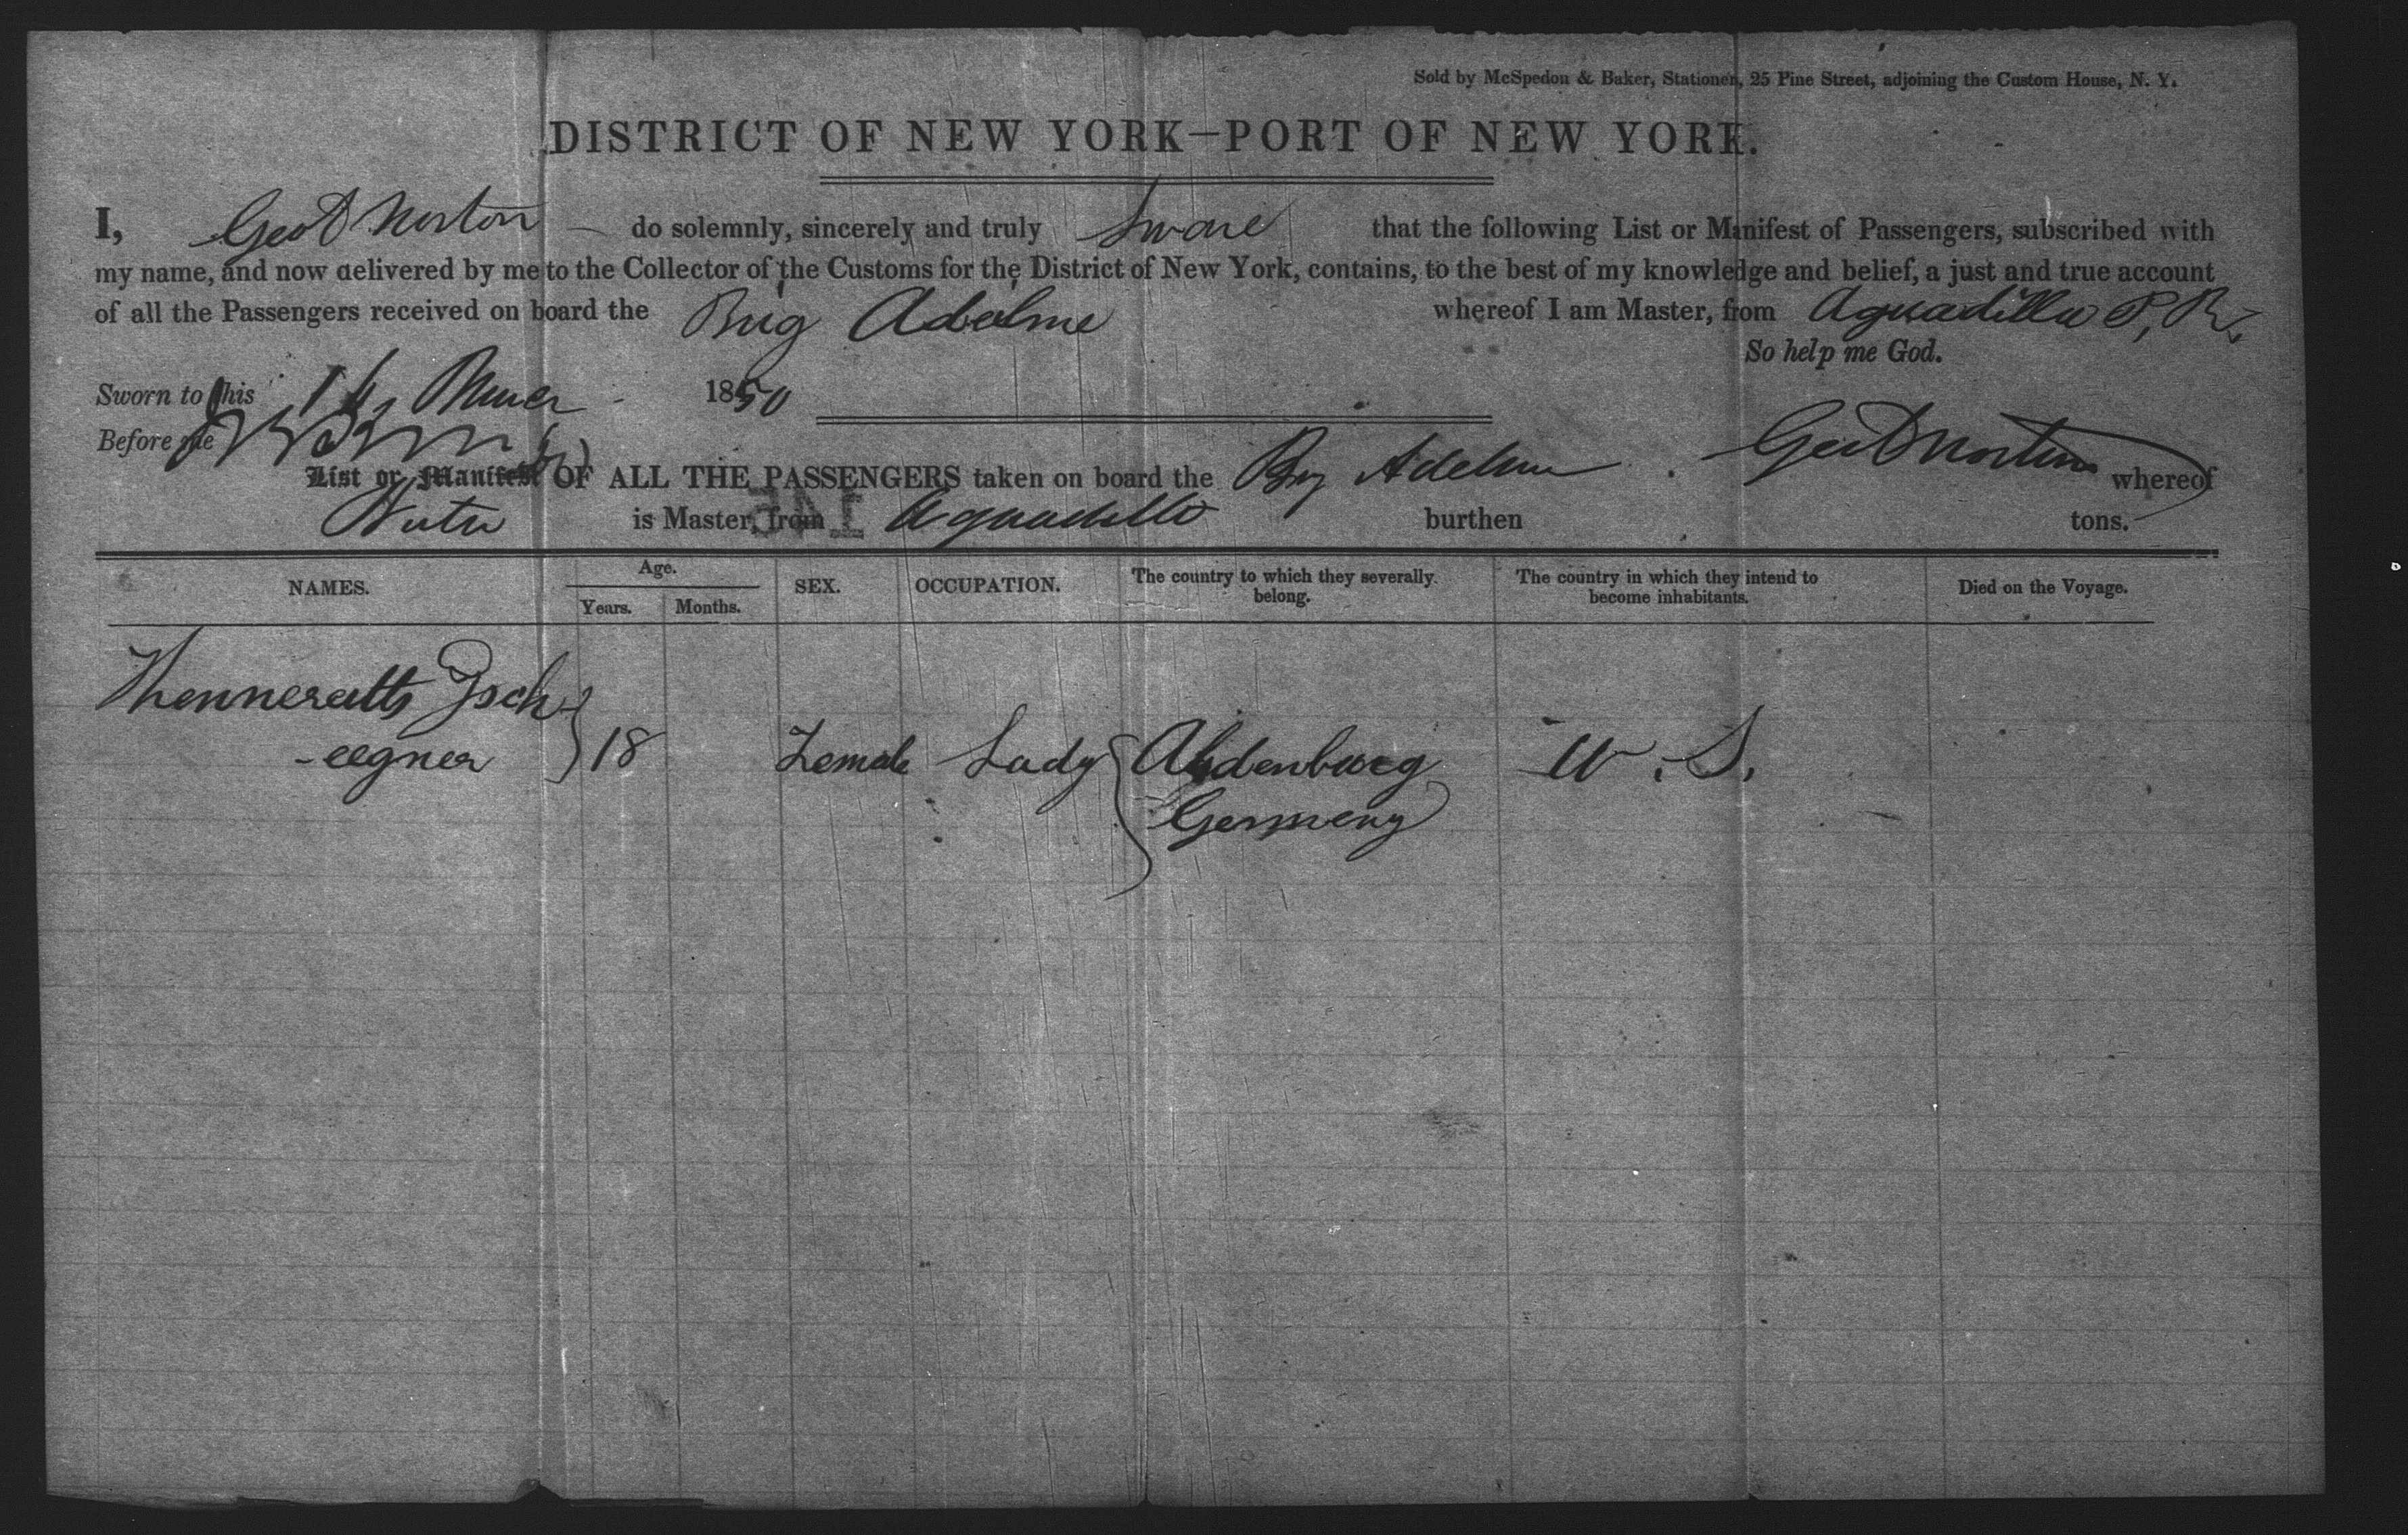 Sold by McSpedon & Baker, Stationers, 25 Pine Street, adjoining the Custom House, N. Y.
DISTRICT OF NEW YORK—PORT OF NEW YORK.
I, Geo D Norton do solemnly, sincerely and truly Sware that the following List or Manifest of Passengers, subscribed with
my name, and now delivered by me to the Collector of the Customs for the District of New York, contains, to the best of my knowledge and belief, a just and true account
of all the Passengers received on board the Brig Adelme whereof I am Master, from Aguadilla P, R.
So help me God.
Sworn to this 1850
Before me Geo D Norton
List or Manifest OF ALL THE PASSENGERS taken on board the Brig whereof
is Master, from Aguadilla burthen tons.
145
NAMES. Age. SEX. OCCUPATION. The country to which they severally belong. The country in which they intend to become inhabitants. Died on the Voyage.
Years. Months.
18 Female Lady U. S.
Germeny